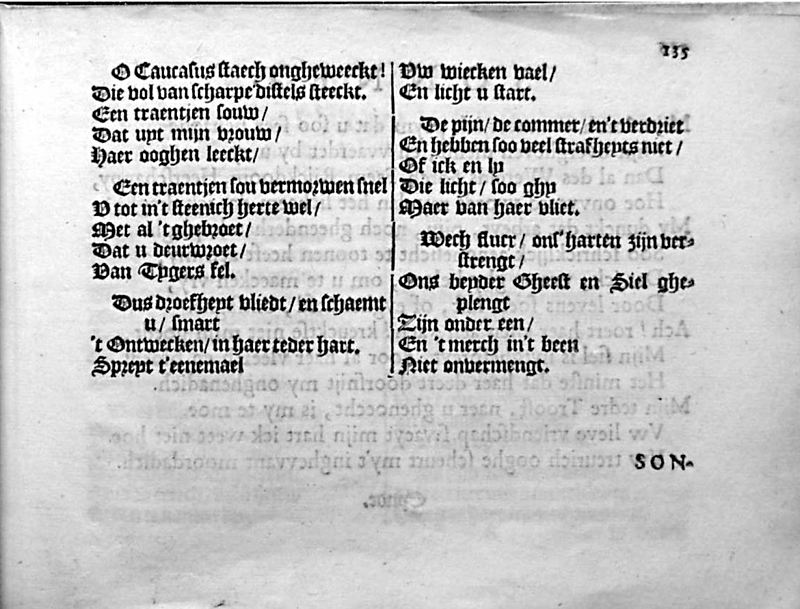 135
O Caucasus staech ongheweeckt!
Die vol van scharpe distels steeckt.
Een traentjen souw/
Dat uyt mijn vrouw/
Haer ooghen leeckt/
Een traentjen sou vermorwen snel
V tot in't steenich herte wel/
Met al 't ghebroet/
Dat u deurwroet/
Van Tygers fel.
Dus droefheyt vliedt/ en schaemt
u/ smart
't Ontwecken/ in haer teder hart.
Spreyt t'eenemael
Vw wiecken vael/
En licht u start.
De pijn/ de commer/ en't verdriet
En hebben soo veel strafheyts niet/
Of ick en ly
Die licht/ soo ghy
Maer van haer vliet.
Wech slucr/ ons' harten zijn ver-
strengt/
Ons beyder Gheest en Siel ghe-
plengt
Zijn onder een/
En 't merch in't been
Niet onvermengt.
SON-